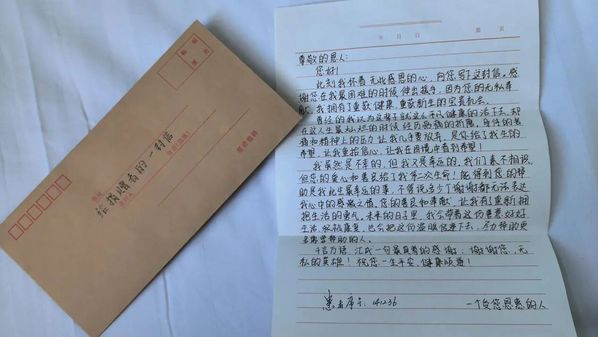 给捐赠者的一封信
年 月 日
尊敬的恩人:
您好!
此刻我怀着无比感恩的心,向您写下这封信。感
谢您在我最困难的时候伸出援手,因为您的无私奉
献,我拥有了重获健康,重获新生的宝贵机会。
曾经的我以为这辈子就这么平凡健康的活下去,却
在这人生最灿烂的时候经历病痛的折磨,身体的苦
痛和精神上的压力让我几度放弃,是您给了我生的
希望,让我重拾信心,让我在困境中看到希望!
我虽然是不幸的,但我又是幸运的,我们素不相识
但您的爱心和善良给了我第二次生命!能得到您的帮
助是我此生最幸运的事,不管说多少了谢谢都无法表达
我心中的感激之情,您的善良和奉献,让我有了重新拥
抱生活的勇气。未来的日子里,我会带着这份善意好好
生活,积极康复,也会把这份温暖传递下去,尽力帮助更
多需要帮助的人。
千言万语,汇成一句最真挚的感谢:谢谢您,无
私的英雄!祝您一生平安,健康顺遂!
患者序号:141236
一个受您恩惠的人